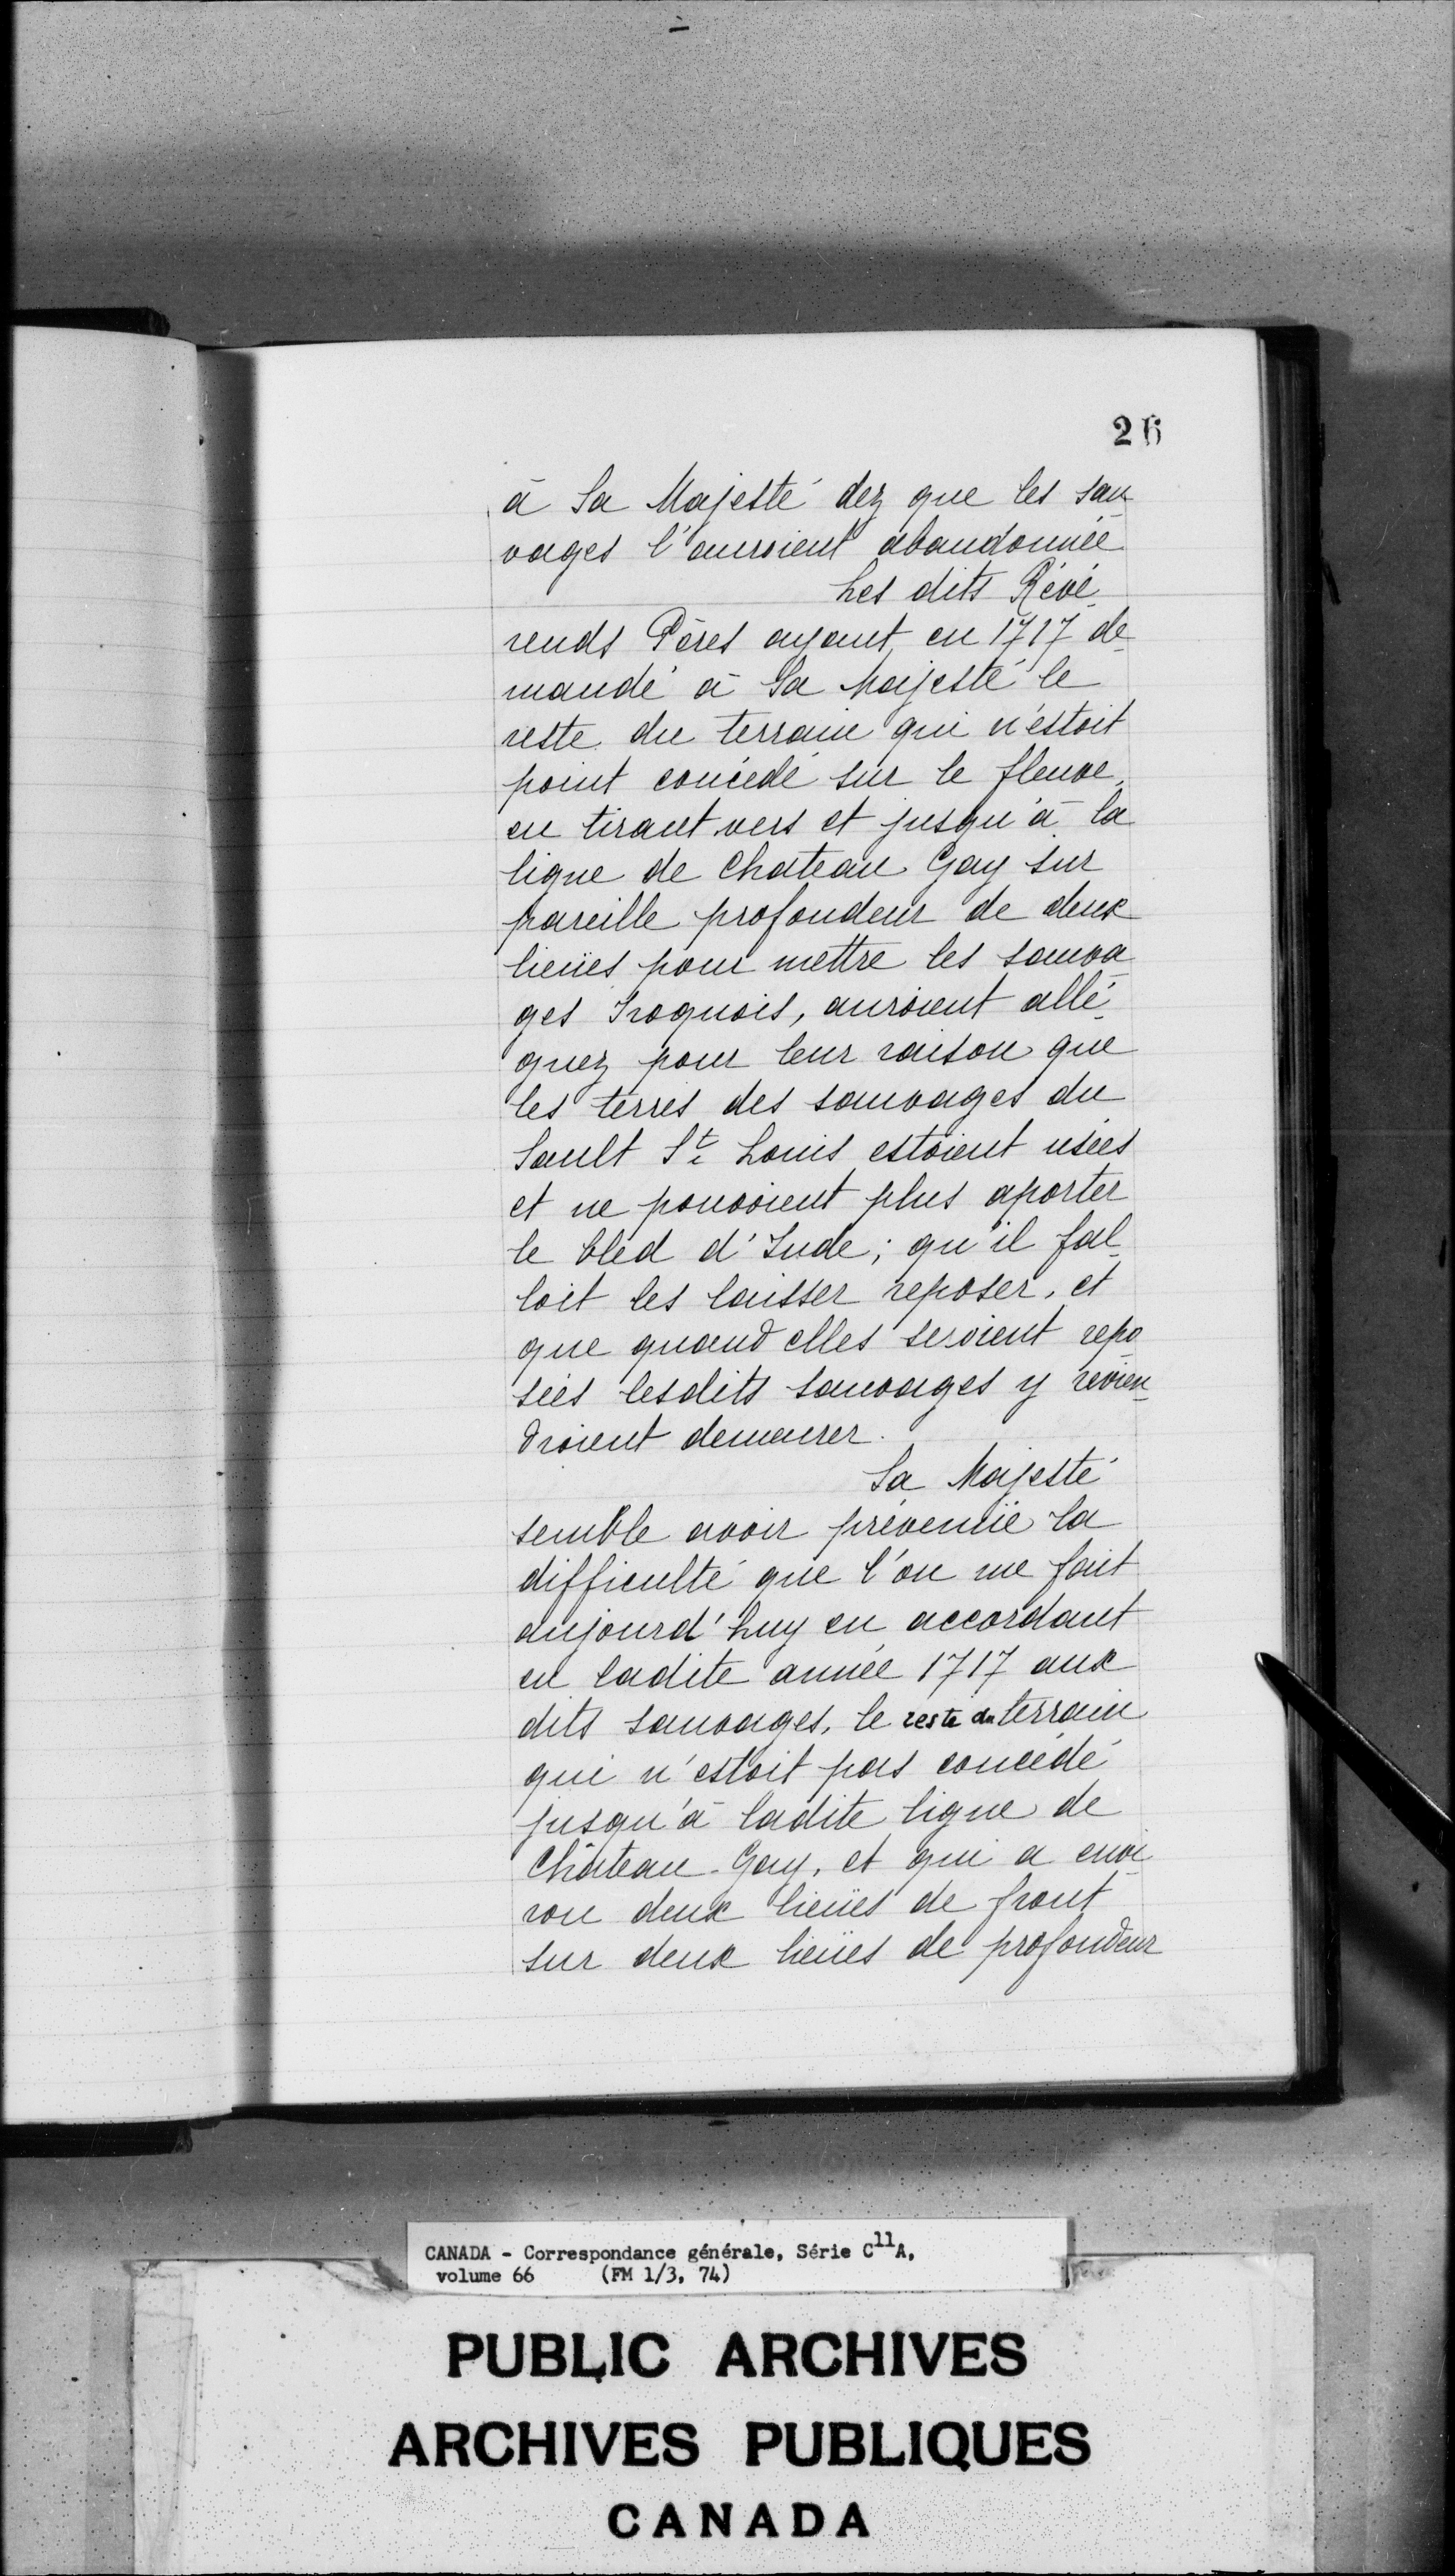 26
à Sa Majesté dez que les sau
vages l'auroient abandonnée
Les dits Révé
rends Pères ayant, en 1717 de
mandé à Sa Majesté le
reste du terrain qui n'estoit
point concédé sur le fleuve,
en tirant vers et jusqu'à la
ligne de Chateau Gay sur
pareille profondeur de deux
lieües pour mettre les sauva
ges Iroquois, auroient allé
guez pour leur raison que
les terres des sauvages du
Sault St. Louis estoient usées
et ne pouvoient plus aporter
le bled d'Inde; qu'il fal
loit les laisser reposer, et
que quand elles seroient repo
sées lesdits sauvages y revien
droient demeurer.
Sa Majesté
semble avoir prévenüe la
difficulté que l'on me fait
aujourd'huy en accordant
en ladite année 1717 aux
dits sauvages, le reste du terrain
qui n'estoit pas concédé
jusqu'à ladite ligne de
Château-Gay, et qui a envi
ron deux lieües de front
sur deux lieües de profondeur
CANADA - Correspondance générale, Série C11A,
volume 66 (FM 1/3, 74)
PUBLIC ARCHIVES
ARCHIVES PUBLIQUES
CANADA